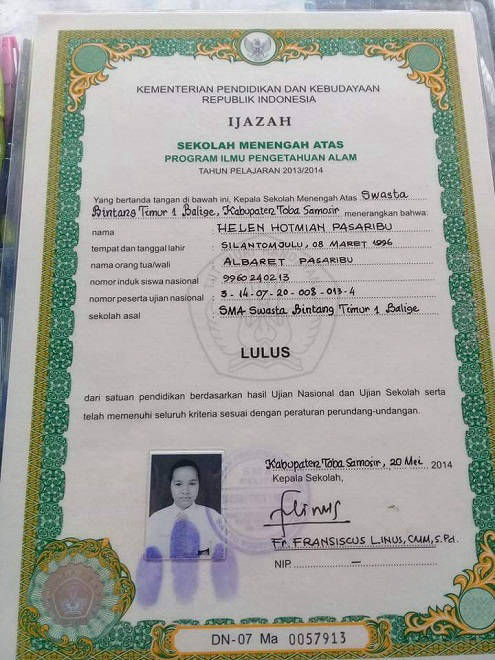 KEMENTERIAN PENDIDIKAN DAN KEBUDAYAAN
REPUBLIK INDONESIA
IJAZAH
SEKOLAH MENENGAH ATAS
PROGRAM ILMU PENGETAHUAN ALAM
TAHUN PELAJARAN 2013/2014
Yang bertanda tangan di bawah ini, Kepala Sekolah Menengah Atas Swasta
Bintang Timur 1 Balige, Kabupaten Toba Samosir menerangkan bahwa:
nama : HELEN HOTMIAN PASARIBU
tempat dan tanggal lahir : SILANTOMJULU, 08 MARET 1996
nama orang tua/wali : ALBARET PASARIBU
nomor induk siswa nasional : 9960240213
nomor peserta ujian nasional : 3-14-07-20-008-013-4
sekolah asal : SMA Swasta Bintang Timur 1 Balige
LULUS
dari satuan pendidikan berdasarkan hasil Ujian Nasional dan Ujian Sekolah serta
telah memenuhi seluruh kriteria sesuai dengan peraturan perundang-undangan.
Kabupaten Toba Samosir, 20 Mei 2014
Kepala Sekolah,
Fr. FRANSISCUS LINUS, CMM, S.Pd.
NIP. —
DN-07 Ma 0057913